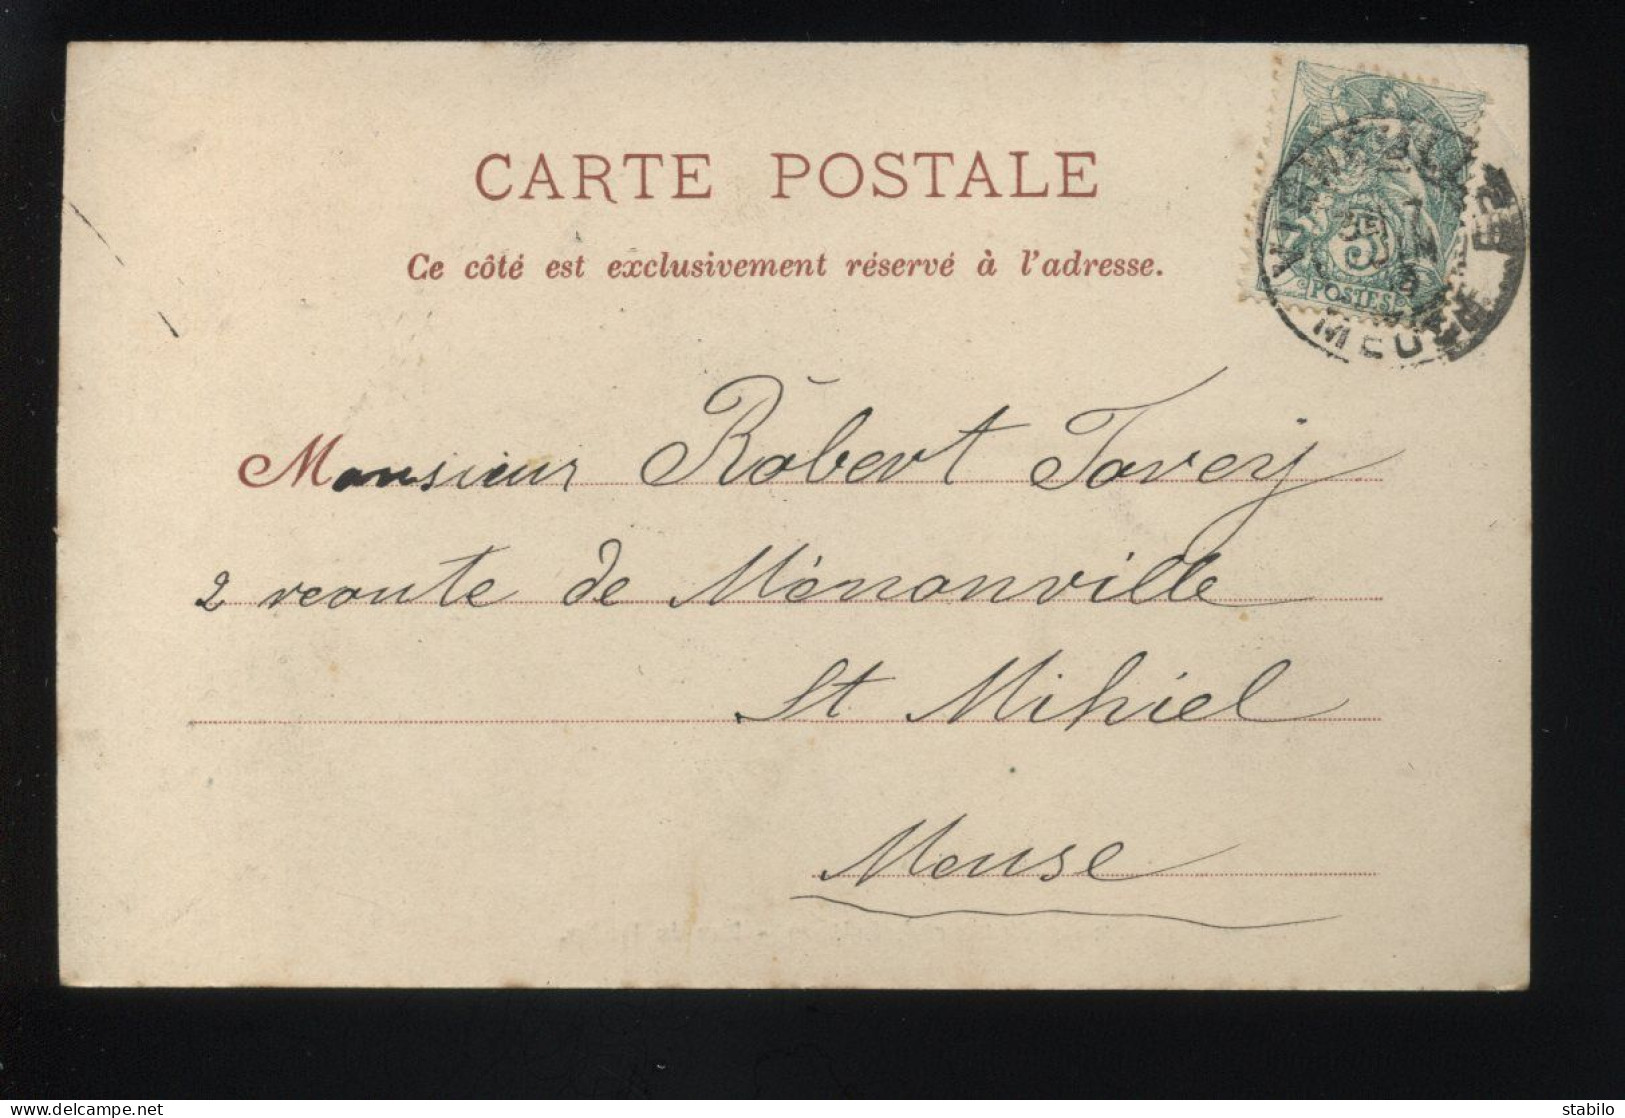 CARTE POSTALE
Ce côté est exclusivement réservé à l'adresse.
5
POSTES
Monsieur Robert Tovey
2 route de Ménonville
St Mihiel
Meuse
stabilo